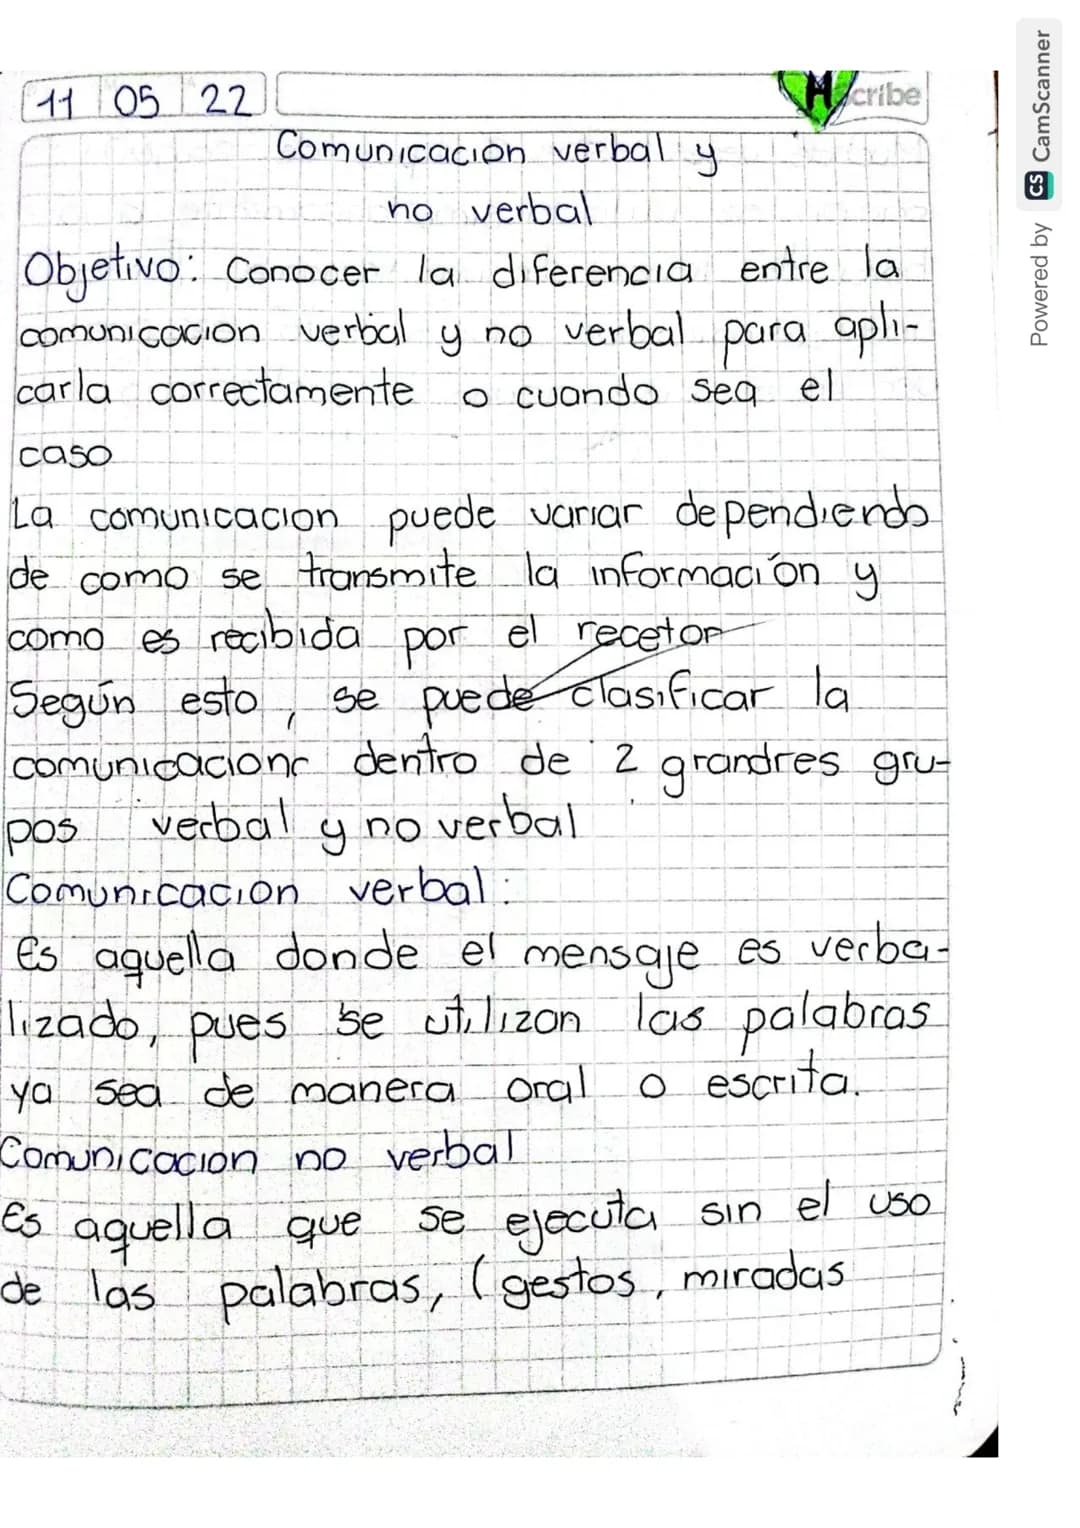 11 05 22
H cribe
Comunicación verbal y
no verbal
Objetivo: Conocer la diferencia entre la
comunicacion verbal y no verbal para apli-
carla correctamente o cuando sea el
caso
La comunicacion puede variar dependiendo
de como se transmite la información y
como es recibida por el recetor
Según esto, se puede clasificar la
comunicacionc dentro de 2 grandres gru-
pos verbal y no verbal
Comunicacion verbal:
Es aquella donde el mensaje es verba-
lizado, pues se utilizan las palabras
ya sea de manera oral o escrita.
Comunicacion no verbal
Es aquella que se ejecuta sin el uso
de las palabras, (gestos, miradas
Powered by CS CamScanner